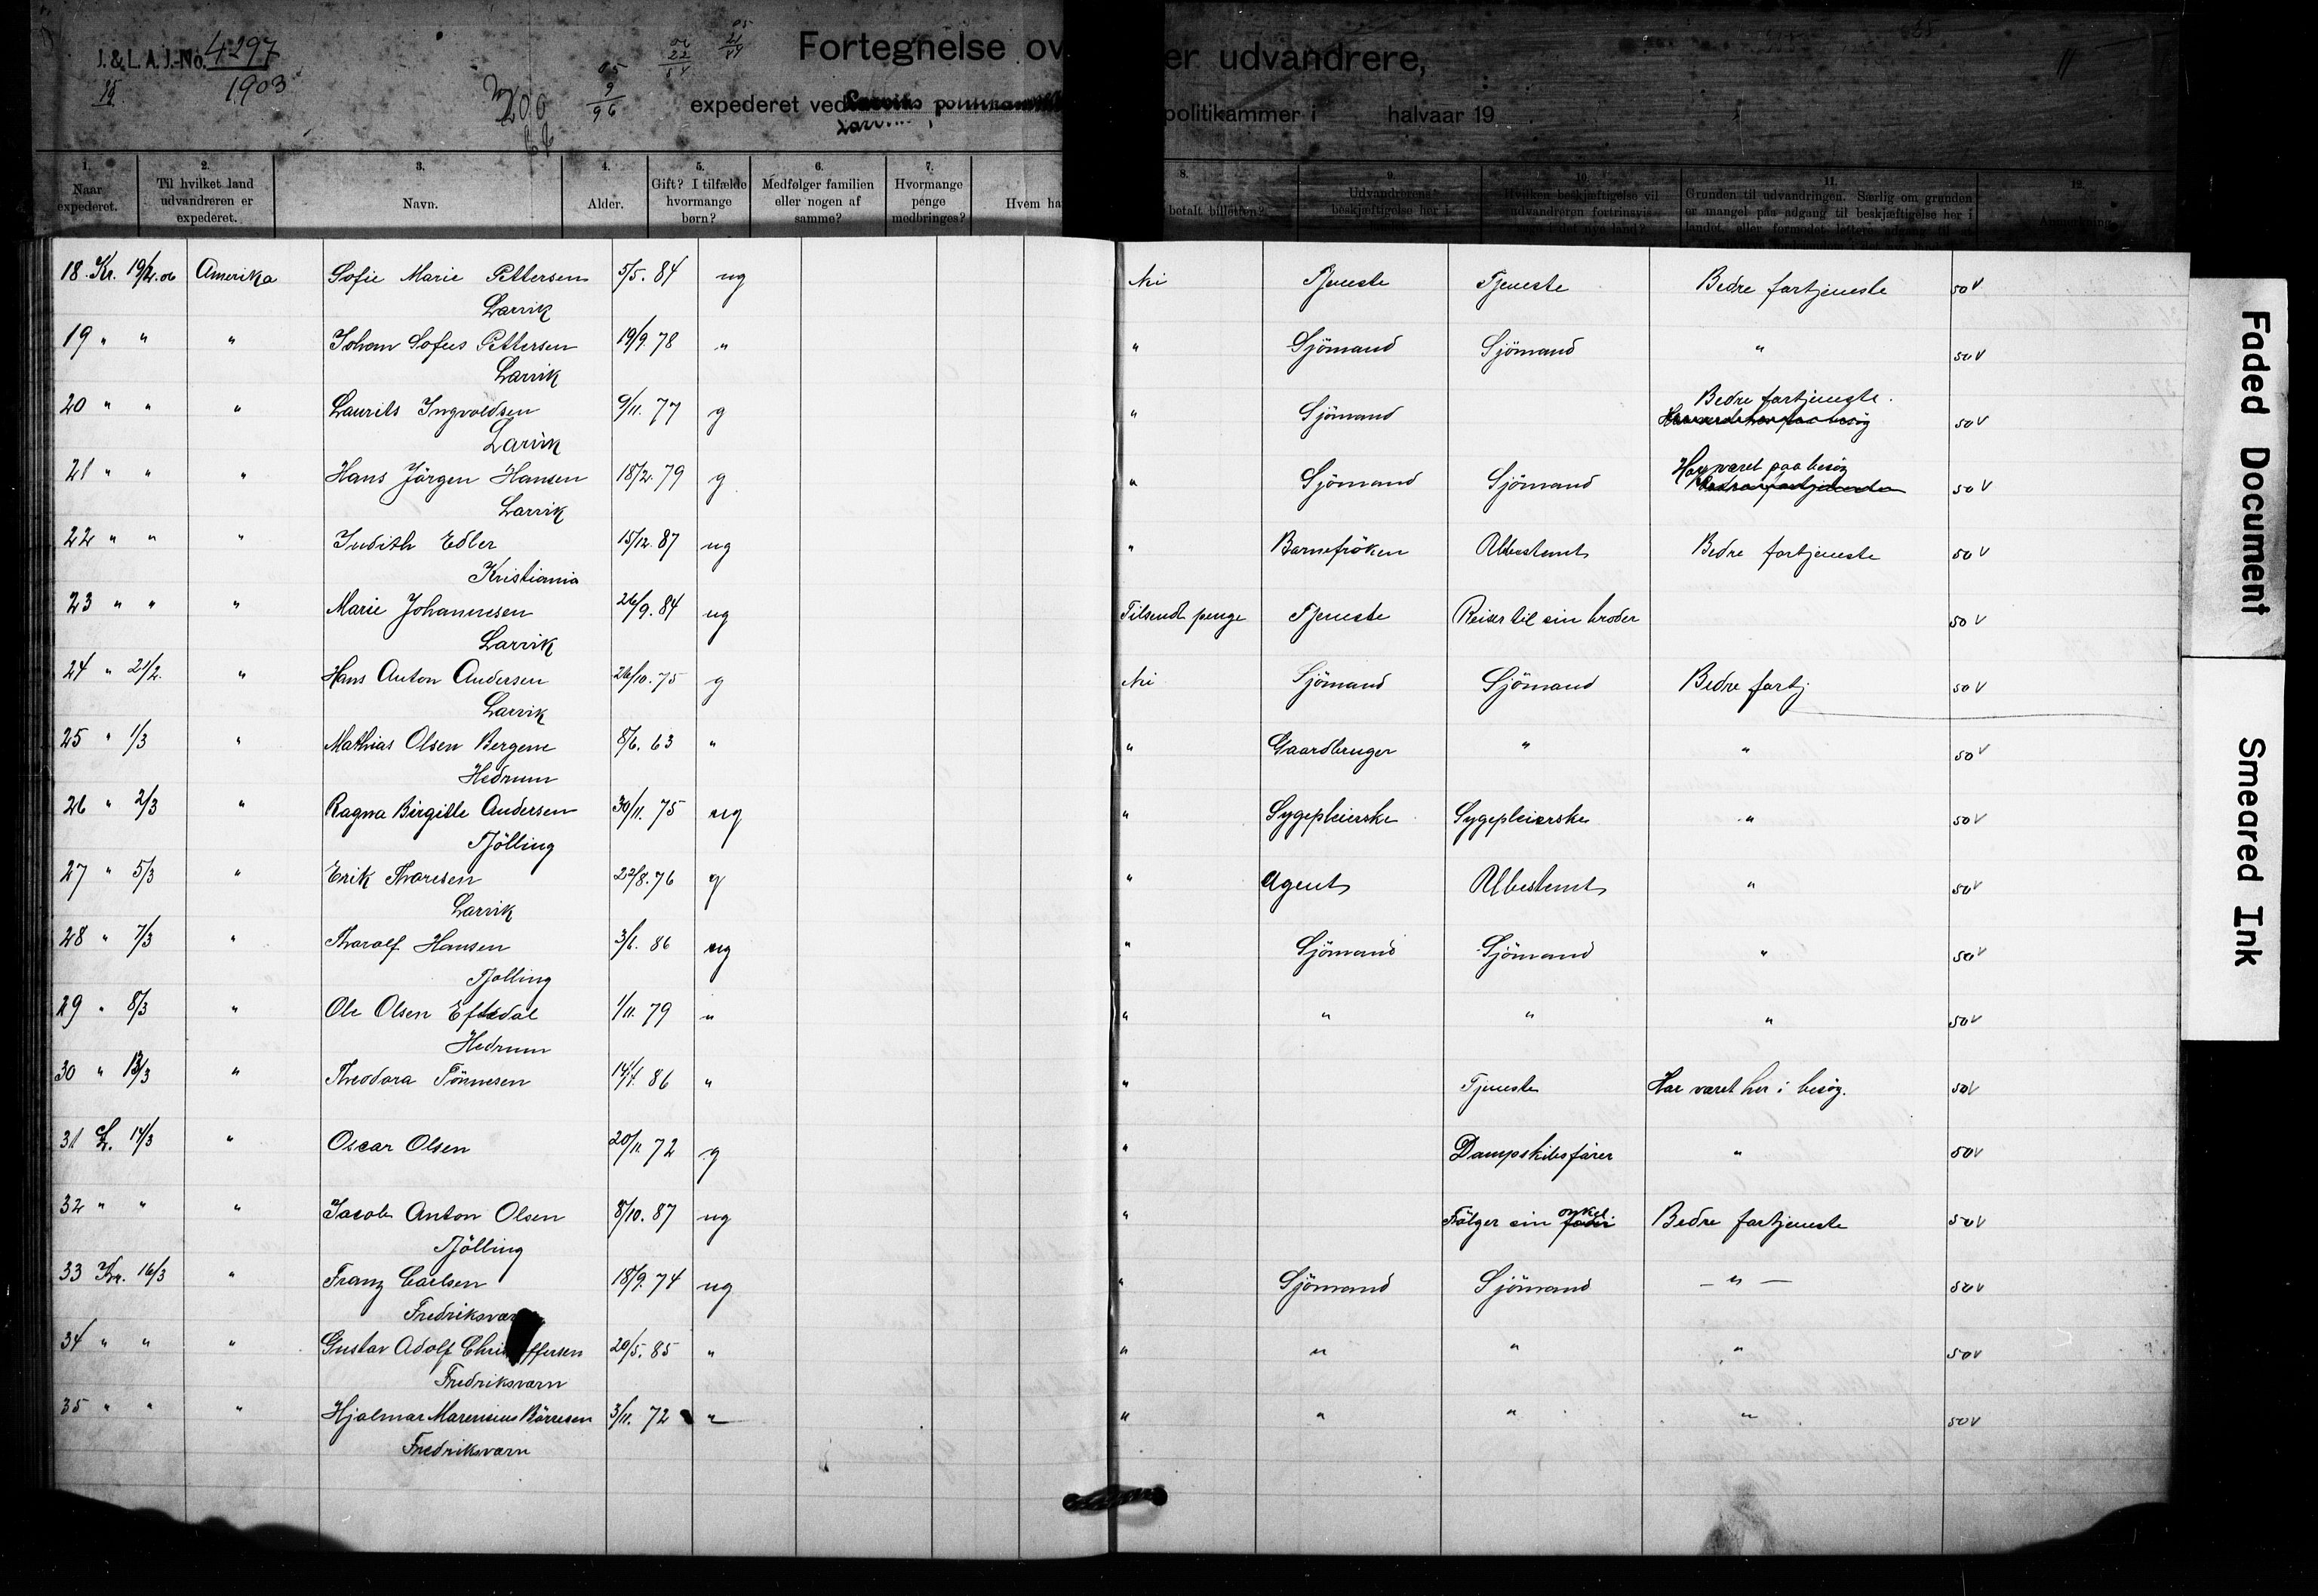 J. & L. A. J.-No. 4297
1903
15
200
05
9
96
06
22
54
05
21
Fortegnelse ov er udvandrere,
expederet ved Larviks politikammer i halvaar 19
Larvik
1. Naar expederet.
2. Til hvilket land udvandreren er expederet.
3. Navn.
4. Alder.
5. Gift? I tilfælde hvormange børn?
6. Medfølger familien eller nogen af samme?
7. Hvormange penge medbringes?
Hvem ha
8. betalt billetten?
9. Udvandrerens beskjæftigelse her i
10. Hvilken beskjæftigelse vil udvandreren fortrinsvis søge i det nye land?
11. Grunden til udvandringen. Særlig om grunden er mangel paa adgang til beskjæftigelse her i landet, eller formodet lettere adgang til
12. Anmærkning.
18. Kr. 19/2.06 Amerika Sofie Marie Pettersen 5/5. 84 ug Nei Tjeneste Tjeneste Bedre fortjeneste 50 V
Larvik
19 " " " Johan Sofus Pettersen 19/9. 78 " " Sjömand Sjömand " 50 V
Larvik
20 " " " Laurits Ingvoldsen 9/11. 77 g " Sjömand Bedre fortjeneste. 50 V
Larvik
21 " " " Hans Jörgen Hansen 18/2. 79 g " Sjömand Sjömand Har været paa besøg 50 V
Larvik
22 " " " Judith Edler 15/12. 87 ug " Barnefröken Ubestemt Bedre fortjeneste 50 V
Kristiania
23 " " " Marie Johannesen 26/9. 84 ug Tilsendt penge Tjeneste Reiser til sin broder 50 V
Larvik
24 " 21/2. " Hans Anton Andersen 26/10. 75 g Nei Sjömand Sjömand Bedre fortj 50 V
Larvik
25 " 1/3 " Mathias Olsen Bergene 8/6. 63 " " Gaardbruger " " 50 V
Hedrum
26 " 2/3 " Ragna Birgitte Andersen 30/11. 75 ug " Sygepleierske Sygepleierske " 50 V
Tjölling
27 " 5/3 " Erik Thoresen 22/8. 76 g " Agent Ubestemt " 50 V
Larvik
28 " 7/3 " Tharalf Hansen 3/6. 86 ug " Sjömand Sjömand " 50 V
Tjölling
29 " 8/3 " Ole Olsen Eftedal 1/11. 79 " " " " " 50 V
Hedrum
30 " 13/3 " Theodora Tönnesen 14/4. 86 " " Tjeneste Har været her i besög. 50 V
31 L. 14/3 " Oscar Olsen 20/11. 72 g " Dampskibsförer " 50 V
32 " " " Jacob Anton Olsen 8/10. 87 ug " Fölger sin fader onkel. Bedre fortjeneste 50 V
Tjölling
33 Kr. 16/3 " Franz Carlsen 18/9. 74 ug " Sjömand Sjömand — " — 50 V
Fredriksvarn
34 " " " Gustav Adolf Christoffersen 20/5. 85 " " " " " 50 V
Fredriksvarn
35 " " " Hjalmar Marensius Börresen 3/11. 72 " " " " " 50 V
Fredriksvarn
Faded Document
Smeared Ink